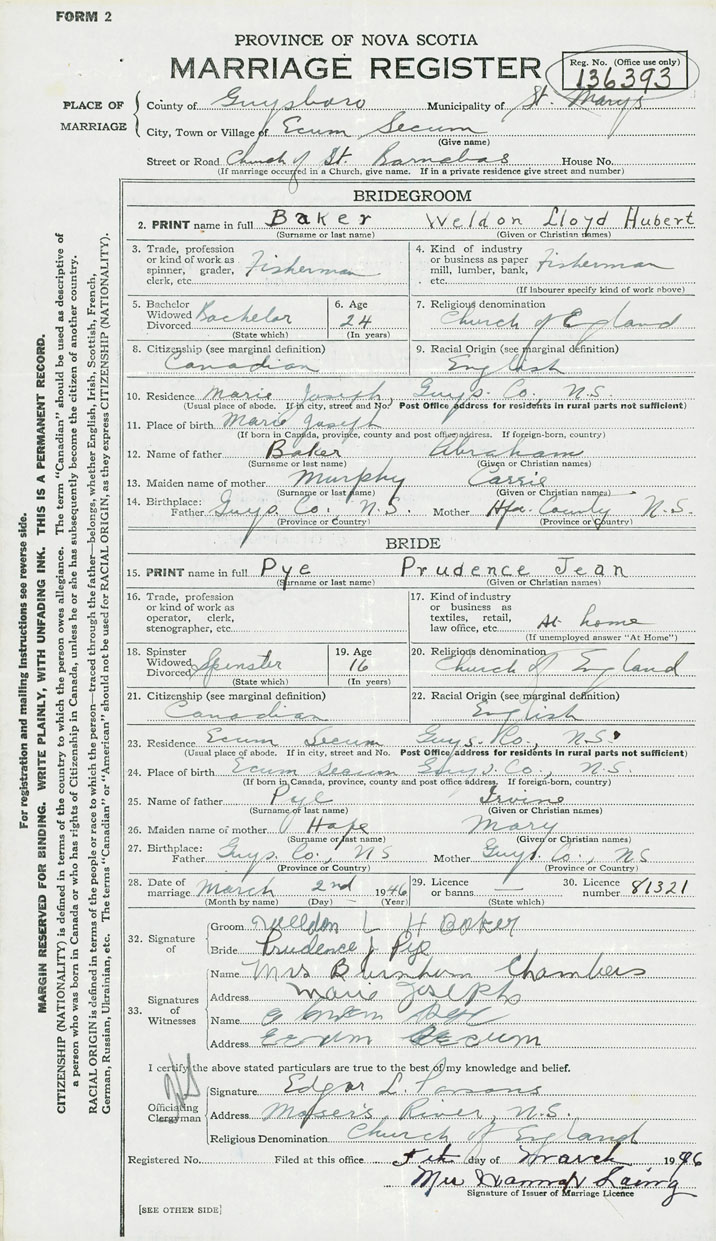 FORM 2
PROVINCE OF NOVA SCOTIA
MARRIAGE REGISTER
Reg. No. (Office use only)
136393
PLACE OF MARRIAGE
County of Guysboro Municipality of St. Marys
City, Town or Village of Ecum Secum
(Give name)
Street or Road Church of St. Barnabas House No.
(If marriage occurred in a Church, give name. If in a private residence give street and number)
BRIDEGROOM
2. PRINT name in full Baker Weldon Lloyd Hubert
(Surname or last name) (Given or Christian names)
3. Trade, profession or kind of work as spinner, grader, clerk, etc. Fisherman
4. Kind of industry or business as paper mill, lumber, bank, etc. Fisherman
(If labourer specify kind of work above)
5. Bachelor Widowed Divorced Bachelor
(State which)
6. Age 24
(In years)
7. Religious denomination
Church of England
8. Citizenship (see marginal definition)
Canadian
9. Racial Origin (see marginal definition)
English
10. Residence Marie Joseph, Guys. Co., N.S.
(Usual place of abode. If in city, street and No. Post Office address for residents in rural parts not sufficient)
11. Place of birth Marie Joseph
(If born in Canada, province, county and post office address. If foreign-born, country)
12. Name of father Baker Abraham
(Surname or last name) (Given or Christian names)
13. Maiden name of mother Murphy Carrie
(Surname or last name) (Given or Christian names)
14. Birthplace: Father Guys. Co. N.S. Mother Hfx. County N.S.
(Province or Country) (Province or Country)
BRIDE
15. PRINT name in full Pye Prudence Jean
(Surname or last name) (Given or Christian names)
16. Trade, profession or kind of work as operator, clerk, stenographer, etc.
17. Kind of industry or business as textiles, retail, law office, etc. At home
(If unemployed answer "At Home")
18. Spinster Widowed Divorced Spinster
(State which)
19. Age 16
(In years)
20. Religious denomination
Church of England
21. Citizenship (see marginal definition)
Canadian
22. Racial Origin (see marginal definition)
English
23. Residence Ecum Secum Guys. Co., N.S.
(Usual place of abode. If in city, street and No. Post Office address for residents in rural parts not sufficient)
24. Place of birth Ecum Secum Guys. Co., N.S.
(If born in Canada, province, county and post office address. If foreign-born, country)
25. Name of father Pye Irvine
(Surname or last name) (Given or Christian names)
26. Maiden name of mother Hape Mary
(Surname or last name) (Given or Christian names)
27. Birthplace: Father Guys. Co., NS Mother Guys. Co., NS
(Province or Country) (Province or Country)
28. Date of marriage March 2nd 1946
(Month by name) (Day) (Year)
29. Licence or banns —
(State which)
30. Licence number 81321
32. Signature of
Groom Welldon L H Baker
Bride Prudence J Pye
33. Signatures of Witnesses
Name Mrs Burnham Chambers
Address Marie Josephs
Name
Address Ecum Secum
I certify the above stated particulars are true to the best of my knowledge and belief.
Officiating Clergyman
Signature Edgar L. Parsons
Address Moser's River, N.S.
Religious Denomination Church of England
Registered No. Filed at this office 5th day of March 1946
Mrs Hannah Laing
Signature of Issuer of Marriage Licence
[SEE OTHER SIDE]
For registration and mailing instructions see reverse side.
MARGIN RESERVED FOR BINDING. WRITE PLAINLY, WITH UNFADING INK. THIS IS A PERMANENT RECORD.
CITIZENSHIP (NATIONALITY) is defined in terms of the country to which the person owes allegiance. The term "Canadian" should be used as descriptive of
a person who was born in Canada or who has rights of Citizenship in Canada, unless he or she has subsequently become the citizen of another country.
RACIAL ORIGIN is defined in terms of the people or race to which the person—traced through the father—belongs, whether English, Irish, Scottish, French,
German, Russian, Ukrainian, etc. The terms "Canadian" or "American" should not be used for RACIAL ORIGIN, as they express CITIZENSHIP (NATIONALITY).